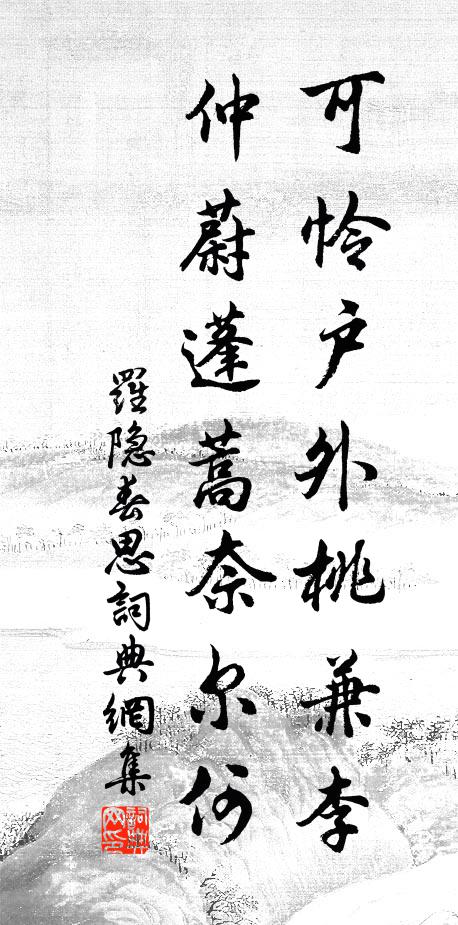 可怜户外桃兼李
仲蔚蓬蒿奈尔何
羅隐春思詞典網集